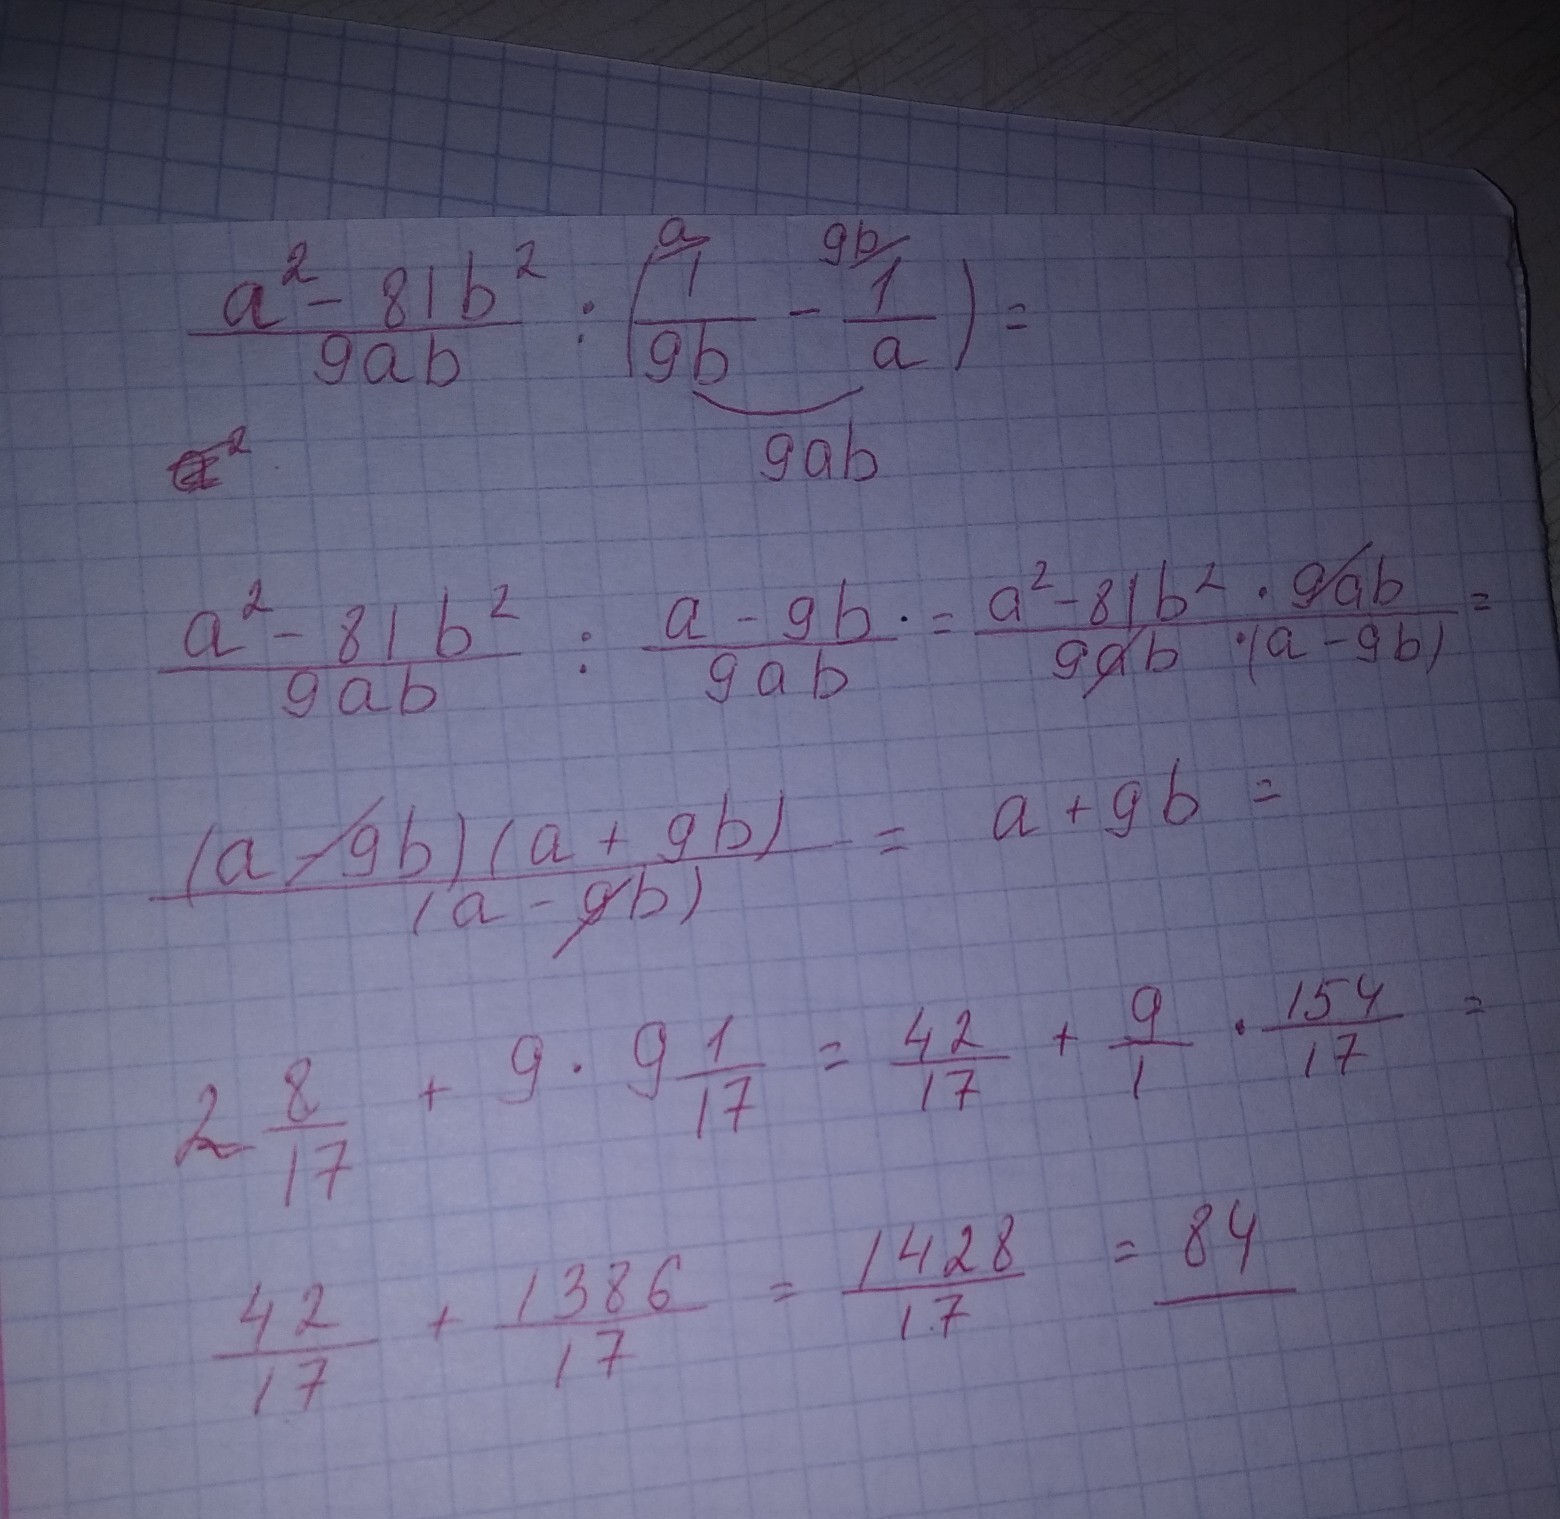 a² - 81b² / 9ab : (a/ 1 / 9b - 9b/ 1 / a) =
9ab
²
a² - 81b² / 9ab : a - 9b / 9ab · = a² - 81b² · 9ab / 9ab · (a - 9b) =
(a - 9b)(a + 9b) / (a - 9b) = a + 9b =
2 8/17 + 9 · 9 1/17 = 42/17 + 9/1 · 154/17 =
42/17 + 1386/17 = 1428/17 = 84